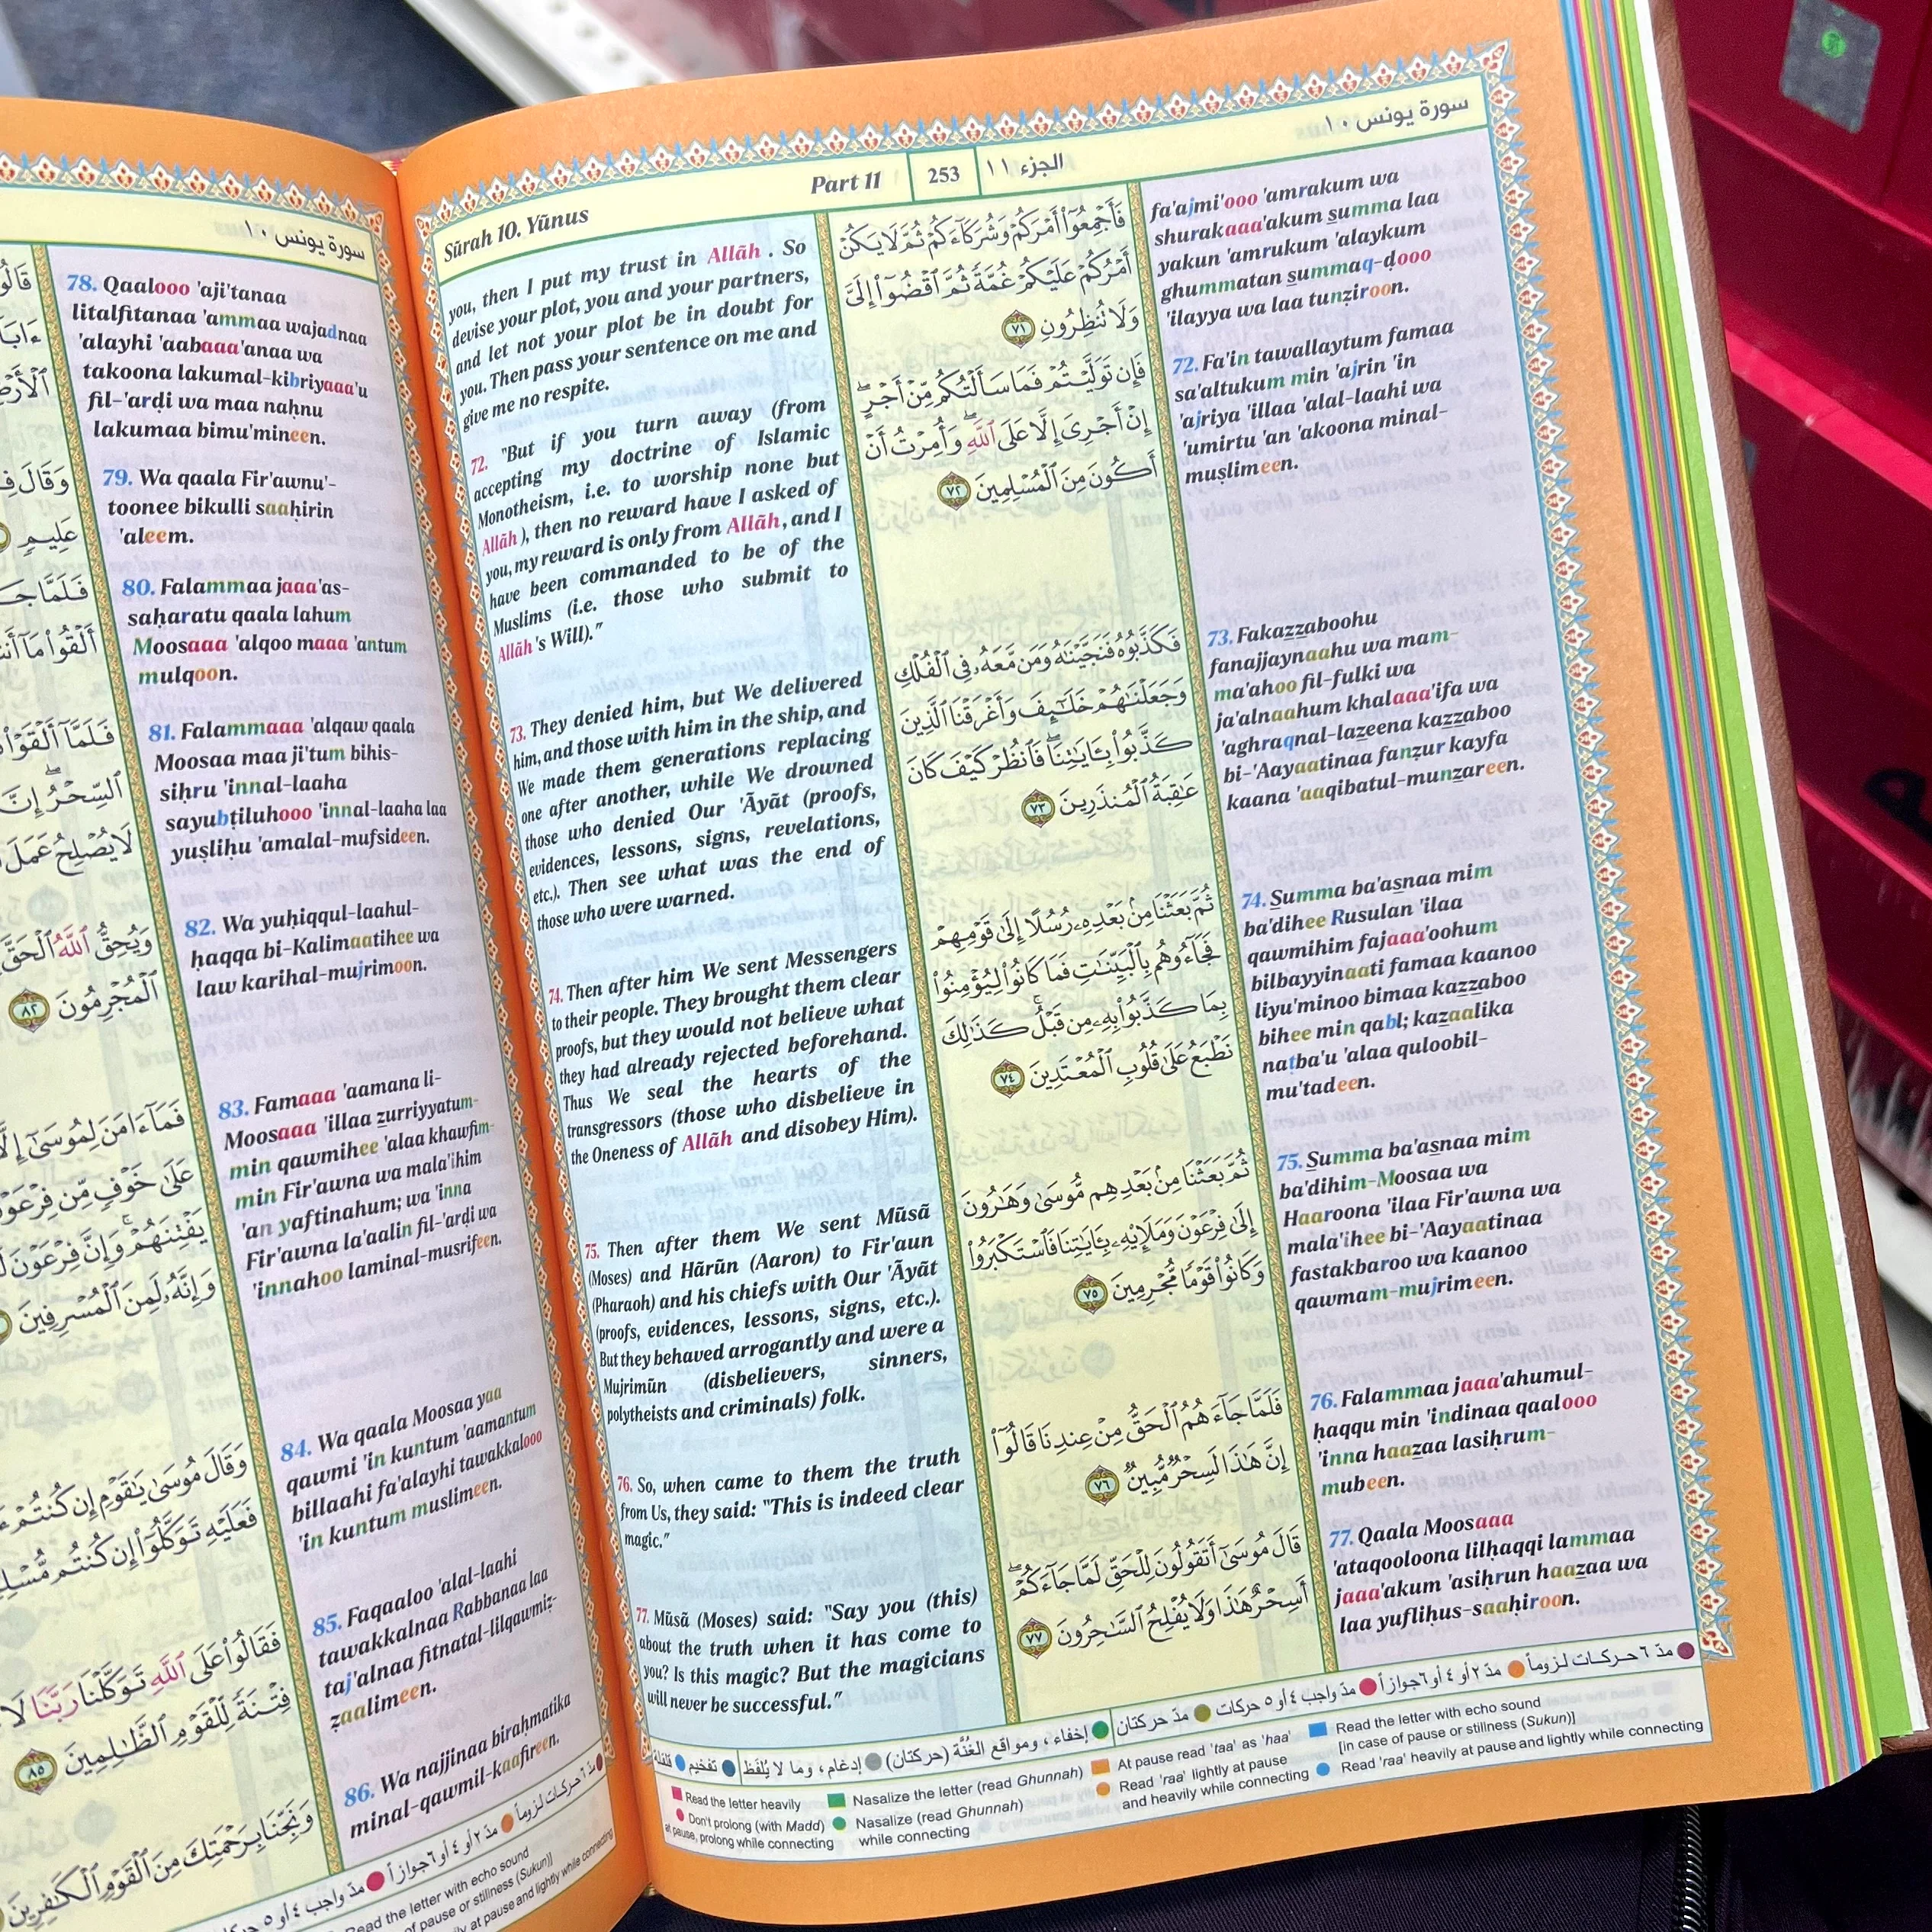 Sūrah 10. Yūnus
Part 11
253
الجزء ١١
سورة يونس ١٠
you, then I put my trust in Allāh . So
devise your plot, you and your partners,
and let not your plot be in doubt for
you. Then pass your sentence on me and
give me no respite.
72. "But if you turn away (from
accepting my doctrine of Islamic
Monotheism, i.e. to worship none but
Allāh ), then no reward have I asked of
you, my reward is only from Allāh, and I
have been commanded to be of the
Muslims (i.e. those who submit to
Allāh's Will)."
73. They denied him, but We delivered
him, and those with him in the ship, and
We made them generations replacing
one after another, while We drowned
those who denied Our 'Āyāt (proofs,
evidences, lessons, signs, revelations,
etc.). Then see what was the end of
those who were warned.
74. Then after him We sent Messengers
to their people. They brought them clear
proofs, but they would not believe what
they had already rejected beforehand.
Thus We seal the hearts of the
transgressors (those who disbelieve in
the Oneness of Allāh and disobey Him).
75. Then after them We sent Mūsā
(Moses) and Hārūn (Aaron) to Fir'aun
(Pharaoh) and his chiefs with Our 'Āyāt
(proofs, evidences, lessons, signs, etc.).
But they behaved arrogantly and were a
Mujrimūn (disbelievers, sinners,
polytheists and criminals) folk.
76. So, when came to them the truth
from Us, they said: "This is indeed clear
magic."
77. Mūsā (Moses) said: "Say you (this)
about the truth when it has come to
you? Is this magic? But the magicians
will never be successful."
فَأَجْمِعُوٓا۟ أَمْرَكُمْ وَشُرَكَآءَكُمْ ثُمَّ لَا يَكُنْ
أَمْرُكُمْ عَلَيْكُمْ غُمَّةً ثُمَّ ٱقْضُوٓا۟ إِلَىَّ
وَلَا تُنظِرُونِ ٧١
فَإِن تَوَلَّيْتُمْ فَمَا سَأَلْتُكُم مِّنْ أَجْرٍ ۖ
إِنْ أَجْرِىَ إِلَّا عَلَى ٱللَّهِ ۖ وَأُمِرْتُ أَنْ
أَكُونَ مِنَ ٱلْمُسْلِمِينَ ٧٢
فَكَذَّبُوهُ فَنَجَّيْنَٰهُ وَمَن مَّعَهُۥ فِى ٱلْفُلْكِ
وَجَعَلْنَٰهُمْ خَلَٰٓئِفَ وَأَغْرَقْنَا ٱلَّذِينَ
كَذَّبُوا۟ بِـَٔايَٰتِنَا ۖ فَٱنظُرْ كَيْفَ كَانَ
عَٰقِبَةُ ٱلْمُنذَرِينَ ٧٣
ثُمَّ بَعَثْنَا مِنۢ بَعْدِهِۦ رُسُلًا إِلَىٰ قَوْمِهِمْ
فَجَآءُوهُم بِٱلْبَيِّنَٰتِ فَمَا كَانُوا۟ لِيُؤْمِنُوا۟
بِمَا كَذَّبُوا۟ بِهِۦ مِن قَبْلُ ۚ كَذَٰلِكَ
نَطْبَعُ عَلَىٰ قُلُوبِ ٱلْمُعْتَدِينَ ٧٤
ثُمَّ بَعَثْنَا مِنۢ بَعْدِهِم مُّوسَىٰ وَهَٰرُونَ
إِلَىٰ فِرْعَوْنَ وَمَلَإِي۟هِۦ بِـَٔايَٰتِنَا فَٱسْتَكْبَرُوا۟
وَكَانُوا۟ قَوْمًا مُّجْرِمِينَ ٧٥
فَلَمَّا جَآءَهُمُ ٱلْحَقُّ مِنْ عِندِنَا قَالُوٓا۟
إِنَّ هَٰذَا لَسِحْرٌ مُّبِينٌ ٧٦
قَالَ مُوسَىٰٓ أَتَقُولُونَ لِلْحَقِّ لَمَّا جَآءَكُمْ ۖ
أَسِحْرٌ هَٰذَا وَلَا يُفْلِحُ ٱلسَّٰحِرُونَ ٧٧
fa'ajmi'ooo 'amrakum wa
shurakaaa'akum summa laa
yakun 'amrukum 'alaykum
ghummatan summaq-ḍooo
'ilayya wa laa tunẓiroon.
72. Fa'in tawallaytum famaa
sa'altukum min 'ajrin 'in
'ajriya 'illaa 'alal-laahi wa
'umirtu 'an 'akoona minal-
muṣlimeen.
73. Fakazzaboohu
fanajjaynaahu wa mam-
ma'ahoo fil-fulki wa
ja'alnaahum khalaaa'ifa wa
'aghraqnal-lazeena kazzaboo
bi-'Aayaatinaa fanẓur kayfa
kaana 'aaqibatul-munzareen.
74. Summa ba'asnaa mim
ba'dihee Rusulan 'ilaa
qawmihim fajaaa'oohum
bilbayyinaati famaa kaanoo
liyu'minoo bimaa kazzaboo
bihee min qabl; kazaalika
naṭba'u 'alaa quloobil-
mu'tadeen.
75. Summa ba'asnaa mim
ba'dihim-Moosaa wa
Haaroona 'ilaa Fir'awna wa
mala'ihee bi-'Aayaatinaa
fastakbaroo wa kaanoo
qawmam-mujrimeen.
76. Falammaa jaaa'ahumul-
ḥaqqu min 'indinaa qaalooo
'inna haazaa lasiḥrum-
mubeen.
77. Qaala Moosaaa
'ataqooloona lilḥaqqi lammaa
jaaa'akum 'asiḥrun haazaa wa
laa yufliḥus-saaḥiroon.
مدّ ٦ حركـات لـزوماً مدّ ٢ أو ٤ أو ٦ جوازاً مدّ واجب ٤ أو ٥ حركات مدّ حركتان إخفاء، ومواقع الغُنَّة (حركتان) إدغام، وما لا يُلفَظ تفخيم قلقلة
Read the letter heavily
Don't prolong (with Madd)
at pause, prolong while connecting
Nasalize the letter (read Ghunnah)
Nasalize (read Ghunnah)
while connecting
At pause read 'taa' as 'haa'
Read 'raa' lightly at pause
and heavily while connecting
Read the letter with echo sound
[in case of pause or stillness (Sukun)]
Read 'raa' heavily at pause and lightly while connecting
سورة يونس ١٠
ٱلْمُجْرِمُونَ ٨٢
وَإِنَّهُۥ لَمِنَ ٱلْمُسْرِفِينَ
وَقَالَ مُوسَىٰ يَٰقَوْمِ إِن كُنتُمْ
فَعَلَيْهِ تَوَكَّلُوٓا۟ إِن كُنتُم
فَقَالُوا۟ عَلَى ٱللَّهِ تَوَكَّلْنَا رَبَّنَا لَا
فِتْنَةً لِّلْقَوْمِ ٱلظَّٰلِمِينَ ٨٥
وَنَجِّنَا بِرَحْمَتِكَ مِنَ ٱلْقَوْمِ ٱلْكَٰفِرِينَ
78. Qaalooo 'aji'tanaa
litalfitanaa 'ammaa wajadnaa
'alayhi 'aabaaa'anaa wa
takoona lakumal-kibriyaaa'u
fil-'arḍi wa maa naḥnu
lakumaa bimu'mineen.
79. Wa qaala Fir'awnu'-
toonee bikulli saaḥirin
'aleem.
80. Falammaa jaaa'as-
saḥaratu qaala lahum
Moosaaa 'alqoo maaa 'antum
mulqoon.
81. Falammaaa 'alqaw qaala
Moosaa maa ji'tum bihis-
siḥru 'innal-laaha
sayubṭiluhooo 'innal-laaha laa
yuṣliḥu 'amalal-mufsideen.
82. Wa yuḥiqqul-laahul-
ḥaqqa bi-Kalimaatihee wa
law karihal-mujrimoon.
83. Famaaa 'aamana li-
Moosaaa 'illaa zurriyyatum-
min qawmihee 'alaa khawfim-
min Fir'awna wa mala'ihim
'an yaftinahum; wa 'inna
Fir'awna la'aalin fil-'arḍi wa
'innahoo laminal-musrifeen.
84. Wa qaala Moosaa yaa
qawmi 'in kuntum 'aamantum
billaahi fa'alayhi tawakkalooo
'in kuntum muslimeen.
85. Faqaaloo 'alal-laahi
tawakkalnaa Rabbanaa laa
taj'alnaa fitnatal-lilqawmiẓ-
ẓaalimeen.
86. Wa najjinaa biraḥmatika
minal-qawmil-kaafireen.
مدّ ٦ حركـات لـزوماً مدّ ٢ أو ٤ أو ٦ جوازاً مدّ واجب ٤ أو ٥
Read the letter with echo sound
of pause or stillness (Sukun)]
at pause and lightly while connecting